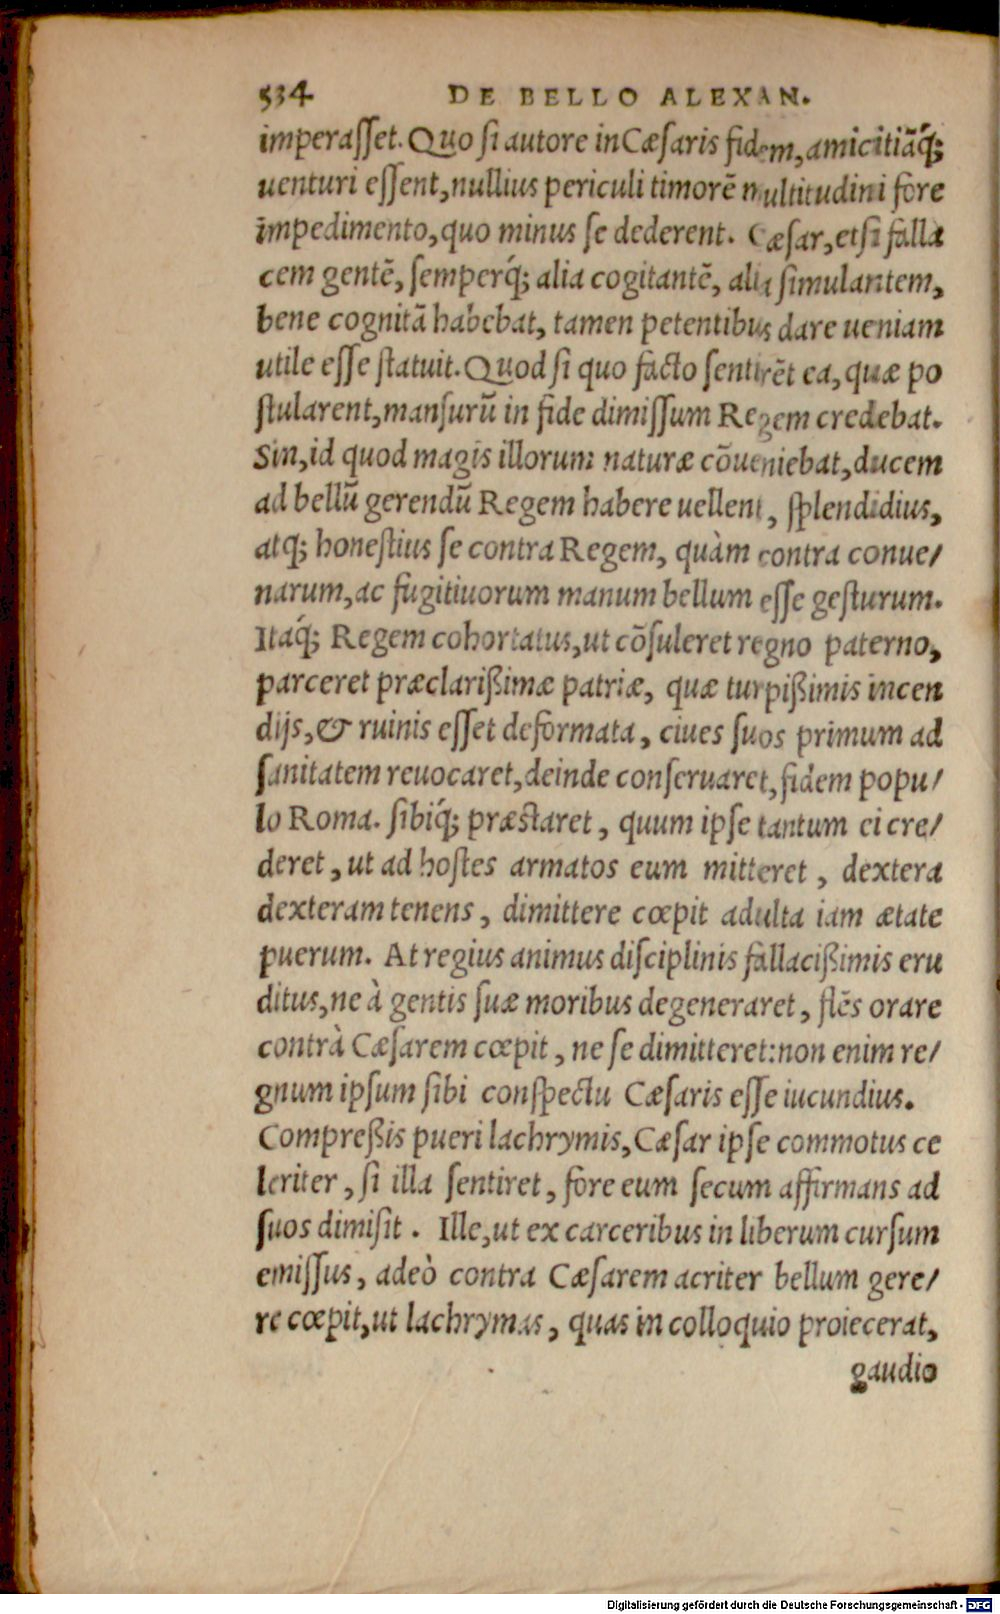 534 DE BELLO ALEXAN.
imperaſſet. Quo ſi autore in Cæſaris fidem, amicitiãq́;
uenturi eſſent, nullius periculi timorẽ multitudini fore
impedimento, quo minus ſe dederent. Cæſar, etſi falla
cem gentẽ, ſemperq́; alia cogitantẽ, alia ſimulantem,
bene cognitã habebat, tamen petentibus dare ueniam
utile eſſe ſtatuit. Quod ſi quo facto ſentirẽt ea, quæ po
ſtularent, manſurũ in fide dimiſſum Regem credebat.
Sin, id quod magis illorum naturæ cõueniebat, ducem
ad bellũ gerendũ Regem habere uellent, ſplendidius,
atq; honeſtius ſe contra Regem, quàm contra conue/
narum, ac fugitiuorum manum bellum eſſe geſturum.
Itaq́; Regem cohortatus, ut cõſuleret regno paterno,
parceret præclarißimæ patriæ, quæ turpißimis incen
dijs, & ruinis eſſet deformata, ciues ſuos primum ad
ſanitatem reuocaret, deinde conſeruaret, fidem popu/
lo Roma. ſibiq́; præstaret, quum ipſe tantum ei cre/
deret, ut ad hoſtes armatos eum mitteret, dextera
dexteram tenens, dimittere cœpit adulta iam ætate
puerum. At regius animus diſciplinis fallacißimis eru
ditus, ne à gentis ſuæ moribus degeneraret, flẽs orare
contrà Cæſarem cœpit, ne ſe dimitteret: non enim re/
gnum ipſum ſibi conſpectu Cæſaris eſſe iucundius.
Compreßis pueri lachrymis, Cæſar ipſe commotus ce
leriter, ſi illa ſentiret, fore eum ſecum affirmans ad
ſuos dimiſit. Ille, ut ex carceribus in liberum curſum
emiſſus, adeò contra Cæſarem acriter bellum gere/
re cœpit, ut lachrymas, quas in colloquio proiecerat,
gaudio
Digitalisierung gefördert durch die Deutsche Forschungsgemeinschaft - DFG